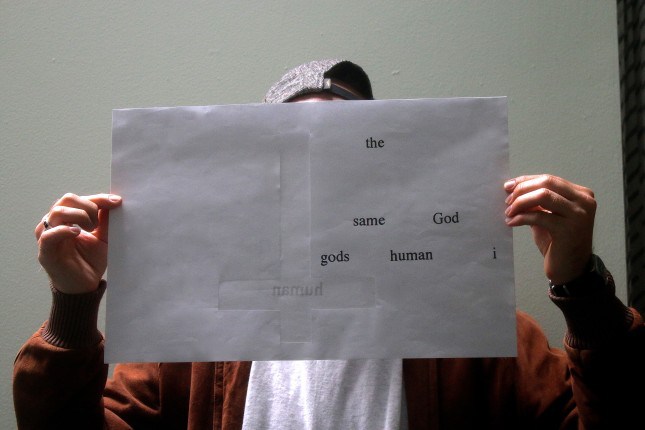 the
same God
gods human i
human